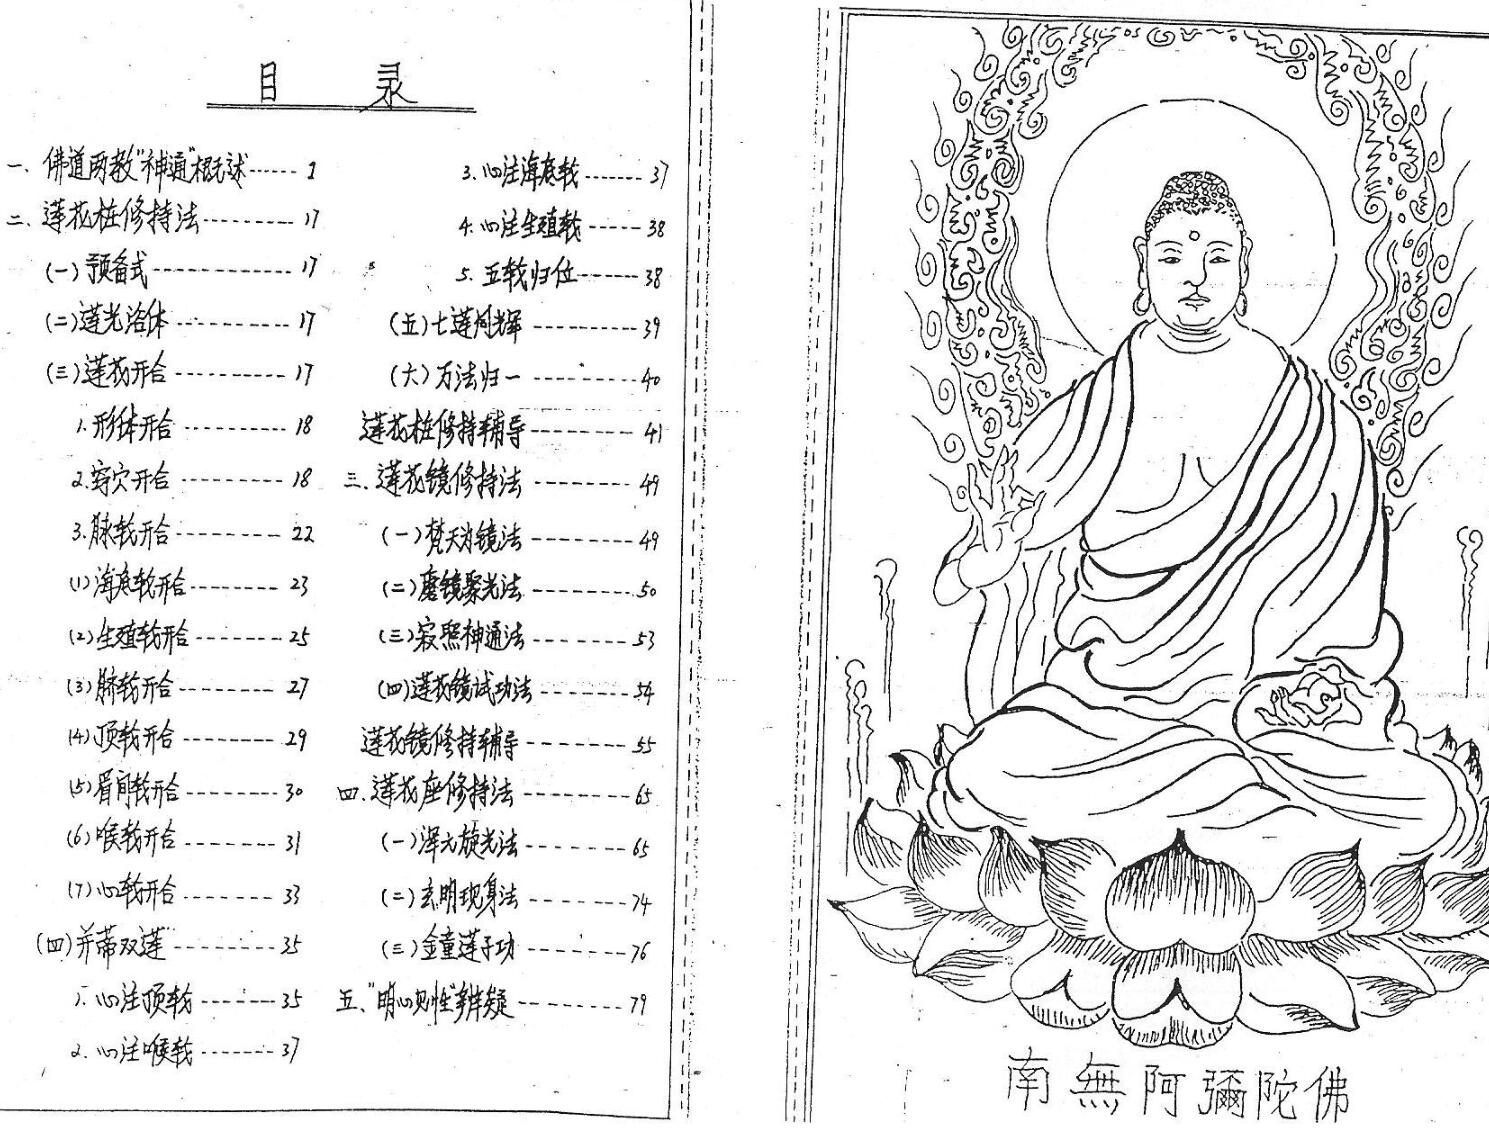 目 录
一、佛道两教"神通"概述------1
二、莲花桩修持法---------17
(一)预备式------------17
(二)莲光浴体----------17
(三)莲花开合----------17
1.形体开合---------18
2.窍穴开合---------18
3.脉轮开合---------22
(1)海底轮开合--------23
(2)生殖轮开合--------25
(3)脐轮开合--------27
(4)顶轮开合--------29
(5)眉间轮开合--------30
(6)喉轮开合--------31
(7)心轮开合--------33
(四)并蒂双莲---------35
1.心注顶轮-------35
2.心注喉轮-------37
3.心注海底轮------37
4.心注生殖轮-----38
5.五轮归位------38
(五)七莲同辉---------39
(六)万法归一---------40
莲花桩修持辅导---------41
三、莲花镜修持法---------49
(一)梵天为镜法---------49
(二)磨镜聚光法---------50
(三)寂照神通法---------53
(四)莲花镜试功法--------54
莲花镜修持辅导---------55
四、莲花座修持法---------65
(一)浑元旋光法---------65
(二)玄明现身法--------74
(三)金童莲子功--------76
五、"明心见性"辨疑---------79
南無阿彌陀佛